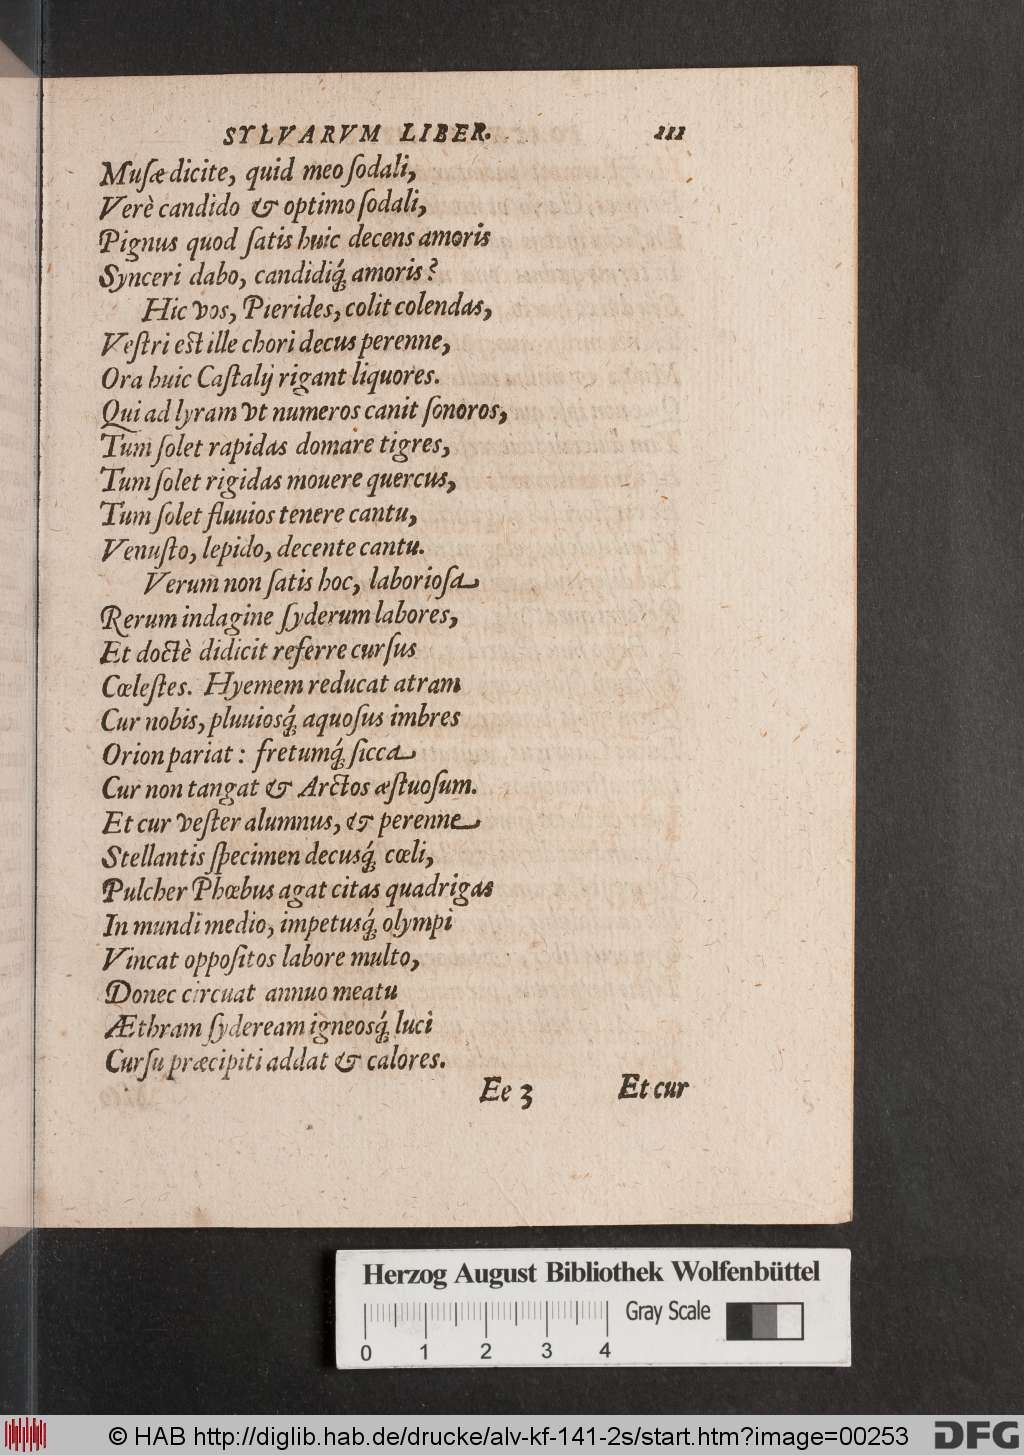 SYLVARVM LIBER. 111
Musæ dicite, quid meo sodali,
Verè candido & optimo sodali,
Pignus quod satis huic decens amoris
Synceri dabo, candidiq́; amoris?
Hic vos, Pierides, colit colendas,
Vestri est ille chori decus perenne,
Ora huic Castalij rigant liquores.
Qui ad lyram vt numeros canit sonoros,
Tum solet rapidas domare tigres,
Tum solet rigidas mouere quercus,
Tum solet fluuios tenere cantu,
Venusto, lepido, decente cantu.
Verum non satis hoc, laboriosa
Rerum indagine syderum labores,
Et doctè didicit referre cursus
Cœlestes. Hyemem reducat atram
Cur nobis, pluuiosq́; aquosus imbres
Orion pariat: fretumq́; sicca
Cur non tangat & Arctos æstuosum.
Et cur vester alumnus, & perenne
Stellantis specimen decusq́; cœli,
Pulcher Phœbus agat citas quadrigas
In mundi medio, impetusq́; olympi
Vincat oppositos labore multo,
Donec circuat annuo meatu
Æthram sydeream igneosq́; luci
Cursu præcipiti addat & calores.
Ee 3 Et cur
Herzog August Bibliothek Wolfenbüttel
Gray Scale
0 1 2 3 4
© HAB http://diglib.hab.de/drucke/alv-kf-141-2s/start.htm?image=00253
DFG